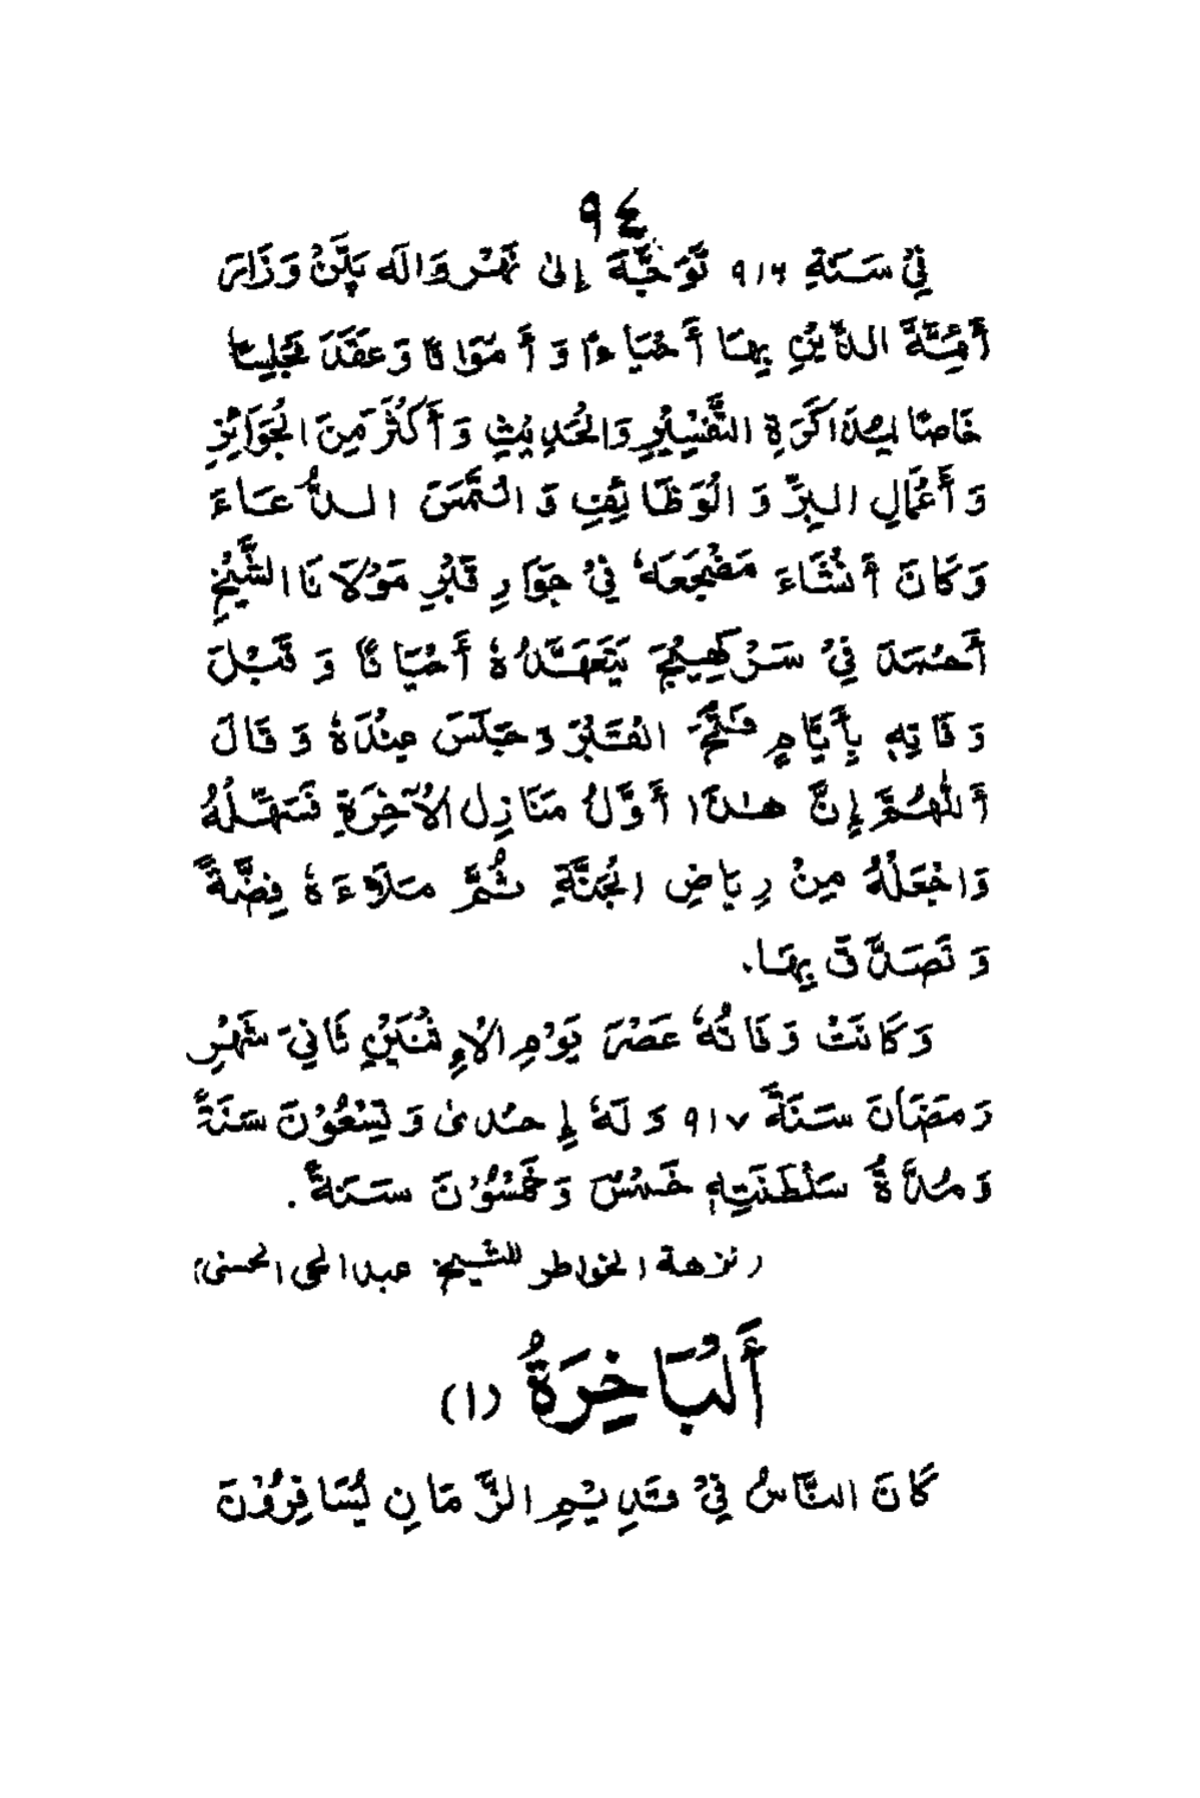 ٩٤
فِيْ سَنَةِ ٩١٦ تَوَجَّهَ إِلىٰ نَهَرْوَالَه پَتَّنْ وَزَارَ
أَئِمَّةَ الدِّيْنِ بِهَا أَحْيَاءً وَ أَمْوَاتًا وَعَقَدَ مَجْلِسًا
خَاصًا لِمُذَاكَرَةِ التَّفْسِيْرِ وَالْحَدِيْثِ وَ أَكْثَرَ مِنَ الْجَوَائِزِ
وَ أَعْمَالِ الْبِرِّ وَ الْوَظَائِفِ وَ الْتَمَسَ الدُّعَاءَ
وَ كَانَ أَنْشَاءَ مَضْجَعَهٗ فِيْ جَوَارِ قَبْرِ مَوْلَانَا الشَّيْخِ
أَحْمَدَ فِيْ سَرْكهِيْجَ يَتَعَهَّدُهٗ أَحْيَانًا وَ قَبْلَ
وَفَاتِهٖ بِأَيَّامٍ فَتَحَ الْقَبْرَ وَجَلَسَ عِنْدَهٗ وَ قَالَ
أَللّٰهُمَّ إِنَّ هٰذَا أَوَّلُ مَنَازِلِ الْآخِرَةِ فَسَهِّلْهُ
وَاجْعَلْهُ مِنْ رِيَاضِ الْجَنَّةِ ثُمَّ مَلَاءَهٗ فِضَّةً
وَ تَصَدَّقَ بِهَا.
وَ كَانَتْ وَفَاتُهٗ عَصْرَ يَوْمِ الْإِثْنَيْنِ ثَانِيَ شَهْرِ
رَمَضَانَ سَنَةَ ٩١٧ وَ لَهٗ إِحْدىٰ وَ تِسْعُوْنَ سَنَةً
وَ مُدَّةُ سَلْطَنَتِهٖ خَمْسٌ وَ خَمْسُوْنَ سَنَةً.
(نزهة الخواطر للشيخ عبدالحى الحسنى)
أَلْبَاخِرَةُ (١)
كَانَ النَّاسُ فِيْ قَدِيْمِ الزَّمَانِ يُسَافِرُوْنَ